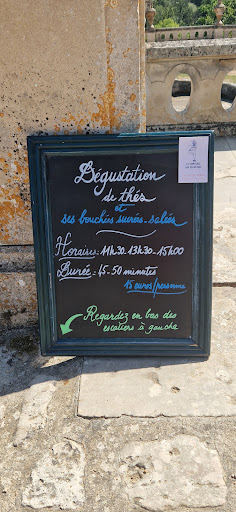 Dégustation
de thés
et
ses bouchées sucrés-salées
Horaires: 11h30.13h30-15h00
Durée: 45-50 minutes
15 euros/personne
Regardez en bas des
escaliers à gauche